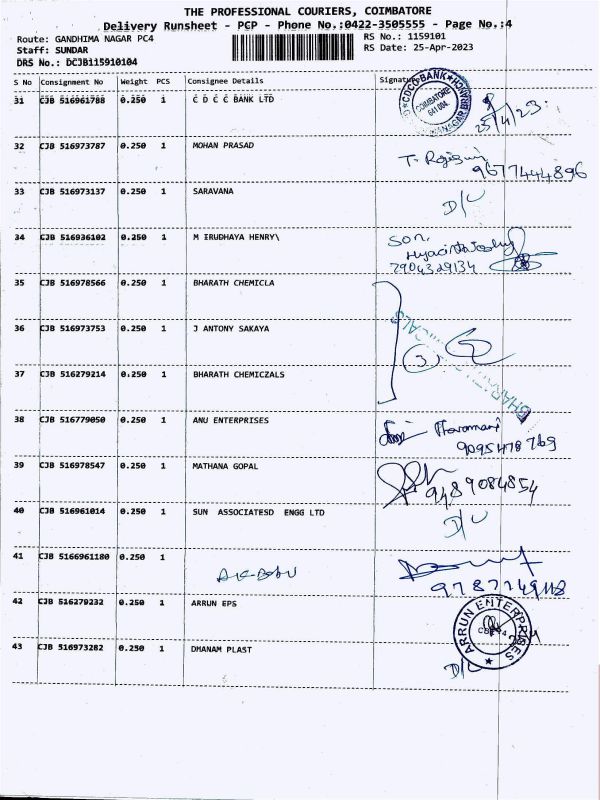 THE PROFESSIONAL COURIERS, COIMBATORE
Delivery Runsheet - PCP - Phone No.:0422-3505555 - Page No.:4
Route: GANDHIMA NAGAR PC4
RS No.: 1159101
Staff: SUNDAR
RS Date: 25-Apr-2023
DRS No.: DCJB115910104
S No Consignment No Weight PCS Consignee Details Signature
31 CJB 516961788 0.250 1 C D C C BANK LTD
COIMBATORE
641 004.
25/4/23
32 CJB 516973787 0.250 1 MOHAN PRASAD
9677444896
33 CJB 516973137 0.250 1 SARAVANA
D/C
34 CJB 516936102 0.250 1 M IRUDHAYA HENRY\
Son.
7904329134
35 CJB 516978566 0.250 1 BHARATH CHEMICLA
36 CJB 516973753 0.250 1 J ANTONY SAKAYA
3
37 CJB 516279214 0.250 1 BHARATH CHEMICZALS
38 CJB 516779050 0.250 1 ANU ENTERPRISES
9095478769
39 CJB 516978547 0.250 1 MATHANA GOPAL
9489084854
40 CJB 516961014 0.250 1 SUN ASSOCIATESD ENGG LTD
D/C
41 CJB 5166961180 0.250 1
42 CJB 516279232 0.250 1 ARRUN EPS
ARRUN ENTERPRISES
43 CJB 516973282 0.250 1 DHANAM PLAST
D/C